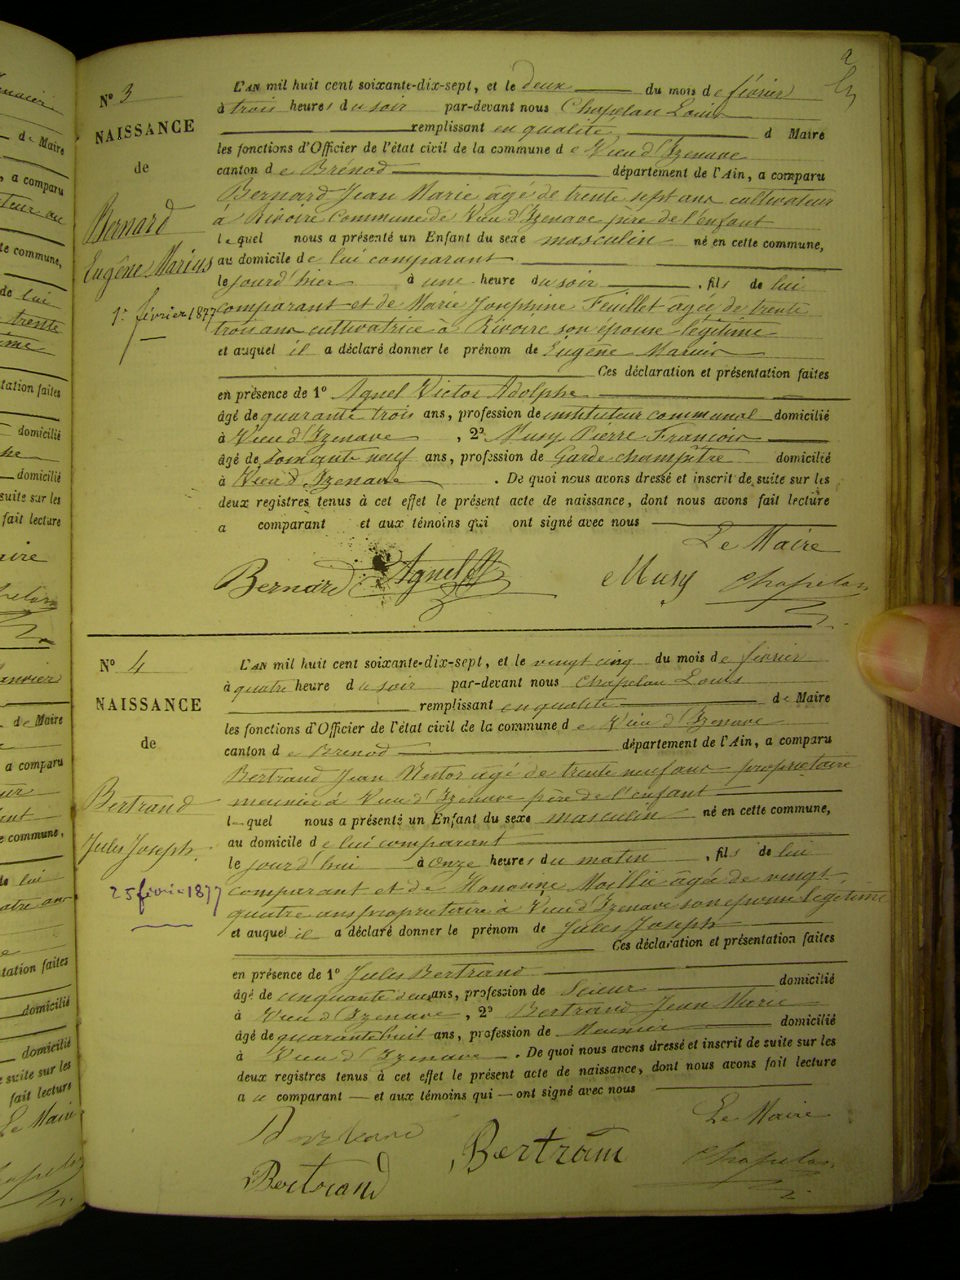 2
N° 3
NAISSANCE
de
Bernard
Eugêne Marius
1er février 1877
L'AN mil huit cent soixante-dix-sept, et le deux du mois de février
à trois heures du soir par-devant nous Chapelan Louis
remplissant en qualité d Maire
les fonctions d'Officier de l'état civil de la commune de Vieu d'Izenave
canton de Brénod département de l'Ain, a comparu
Bernard Jean Marie âgé de trente sept ans cultivateur
à Rivoire Commune de Vieu d'Izenave père de l'enfant
lequel nous a présenté un Enfant du sexe masculin né en cette commune,
au domicile de lui comparant
le jourd'hier à une heure du soir, fils de lui
comparant et de Marie Josephine Feuillet agée de trente
trois ans cultivatrice à Rivoire son épouse légitime
et auquel il a déclaré donner le prénom de Eugêne Marius
Ces déclaration et présentation faites
en présence de 1° Agnel Victor Adolphe
âgé de quarante trois ans, profession de instituteur communal domicilié
à Vieu d'Izenave, 2° Musy Pierre François
âgé de soixante neuf ans, profession de Garde champêtre domicilié
à Vieu d'Izenave. De quoi nous avons dressé et inscrit de suite sur les
deux registres tenus à cet effet le présent acte de naissance, dont nous avons fait lecture
a comparant et aux témoins qui ont signé avec nous
Le Maire
Bernard Agnel Musy Chapelan
N° 4
NAISSANCE
de
Bertrand
Jules Joseph
25 février 1877
L'AN mil huit cent soixante-dix-sept, et le vingt cinq du mois de février
à quatre heure du soir par-devant nous Chapelan Louis
remplissant en qualité de Maire
les fonctions d'Officier de l'état civil de la commune de Vieu d'Izenave
canton de Brénod département de l'Ain, a comparu
Bertrand Jean Nestor agé de trente neuf ans propriétaire
meunier à Vieu d'Izenave père de l'enfant
lequel nous a présenté un Enfant du sexe masculin né en cette commune,
au domicile de lui comparant
le jourd'hui à onze heures du matin, fils de lui
comparant et de âgée de vingt
quatre ans propriétaire à Vieu d'Izenave son épouse légitime
et auquel il a déclaré donner le prénom de Jules Joseph
Ces déclaration et présentation faites
en présence de 1° Jules Bertrand
âgé de cinquante deux ans, profession de Scieur domicilié
à Vieu d'Izenave, 2° Bertrand Jean Marie
âgé de quarante huit ans, profession de Meunier domicilié
à Vieu d'Izenave. De quoi nous avons dressé et inscrit de suite sur les
deux registres tenus à cet effet le présent acte de naissance, dont nous avons fait lecture
a ce comparant et aux témoins qui ont signé avec nous
Le Maire
Bertrand Bertrand Chapelan
Bertrand